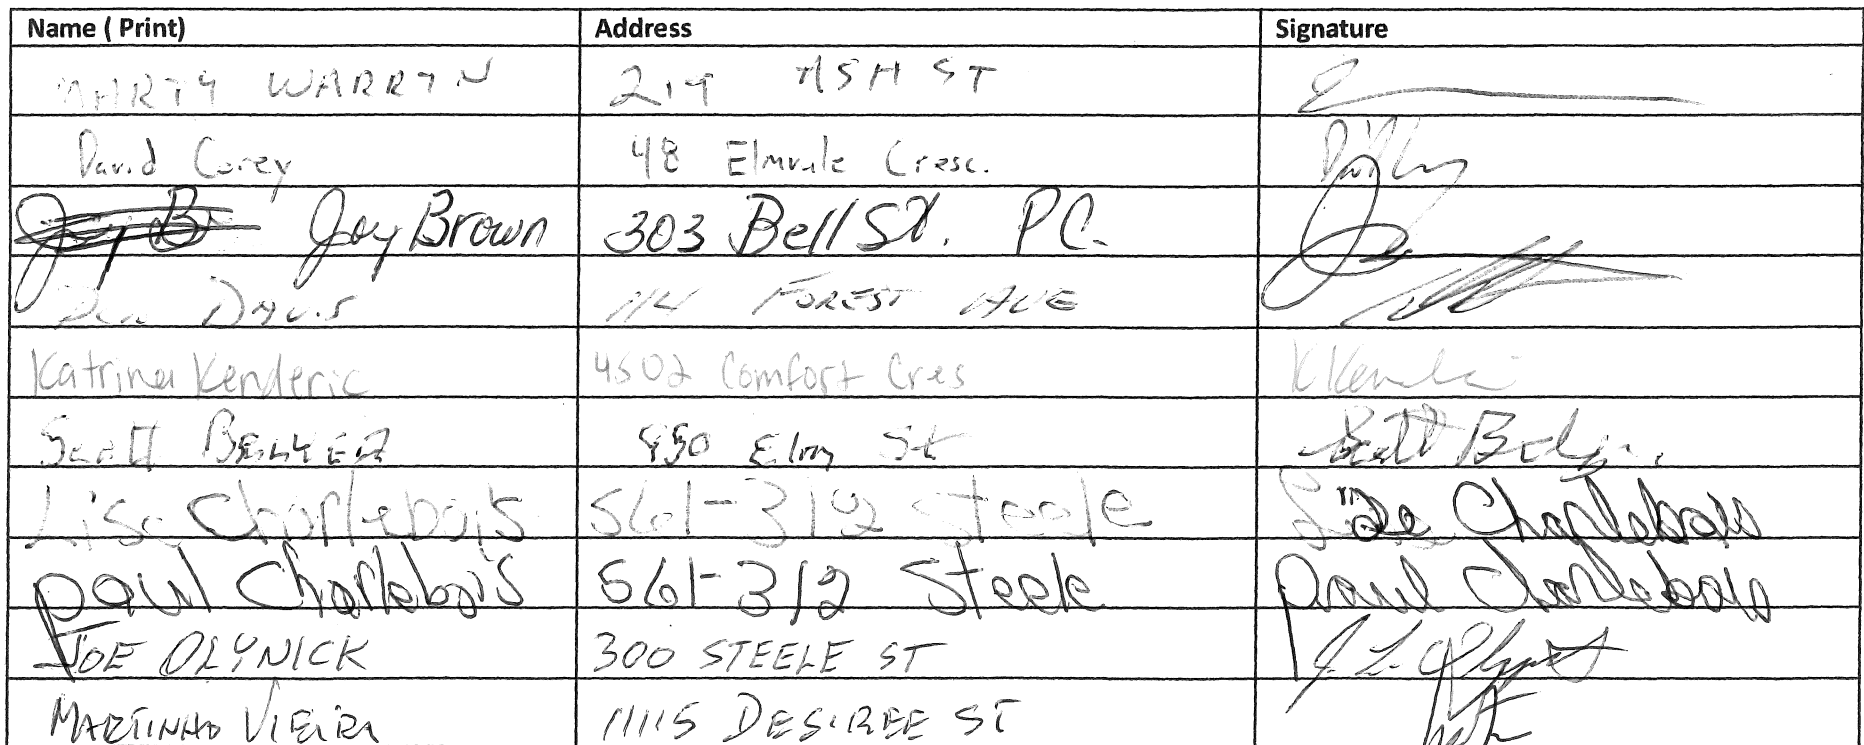 Name ( Print) Address Signature
MARTY WARRYN 219 ASH ST
David Corey 48 Elmvale Cresc.
Joy B Joy Brown 303 Bell St. P.C.
Davis 114 FOREST AVE
Katrina Kenderic 4502 Comfort Cres K Kenderic
Scott 550 Elm St Scott
Lise Charlebois 561-312 Steele Lise Charlebois
paul Charlebois 561-312 Steele paul Charlebois
JOE OLYNICK 300 STEELE ST
MARTINHO VIEIRA 11115 DESIREE ST